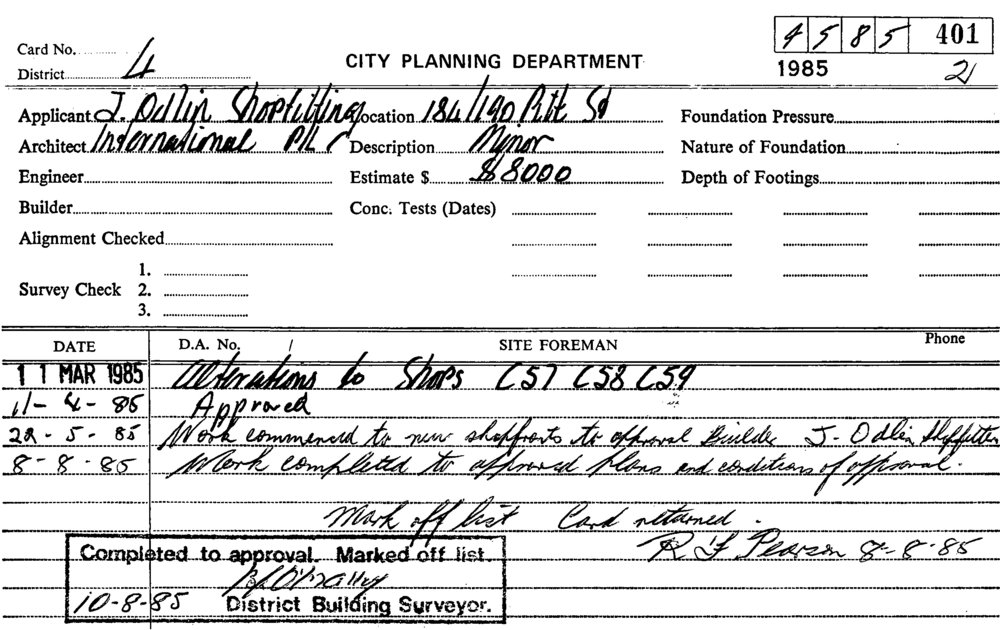 4 5 8 5 401
Card No.
CITY PLANNING DEPARTMENT
1985 21
District 4
Applicant J. Odlin Shopfitting Location 184/190 Pitt St Foundation Pressure
Architect International P/L Description Minor Nature of Foundation
Engineer Estimate $ $8000 Depth of Footings
Builder Conc. Tests (Dates)
Alignment Checked
1.
Survey Check 2.
3.
DATE D.A. No. / SITE FOREMAN Phone
11 MAR 1985 Alterations to Shops C57 C58 C59
11-4-85 Approved
22-5-85 Work commenced to new shopfronts to approval Builder J. Odlin Shopfitter
8-8-85 Work completed to approved plans and conditions of approval.
Mark off list Card returned.
R F Pearson 8-8-85
Completed to approval. Marked off list.
10-8-85 District Building Surveyor.